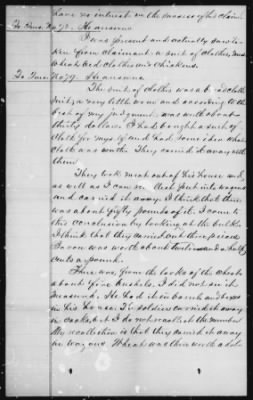 have no interest in the success of his claim
To Ques. No 72. He answers
I was present and actually saw ta-
ken from claimant a suit of clothes, meat
Wheat and chickens.
To Ques. No 79. He answers
The suit of clothes was a broadcloth
suit, a very little worn and according to the
best of my judgment was worth about
thirty dollars. I had bought a suit of
cloth for myself and had some idea what
cloth was worth. They carried it away with
them.
They took meat out of his house and,
as well as I can see put into wagons
and carried it away. I think that there
was about fifty pounds of it. I come to
this conclusion by looking at the bulk.
I think that they carried out three pieces
Bacon was worth about twelve and a half
cents a pound.
There was from the looks of the wheat
about five bushels. I did not see it
measured. He had it in barrels and
in his house. The soldiers carried it away
in sacks, but I do not recollect the number
My recollection is that they carried it away
in wagons. Wheat was then worth a dol-